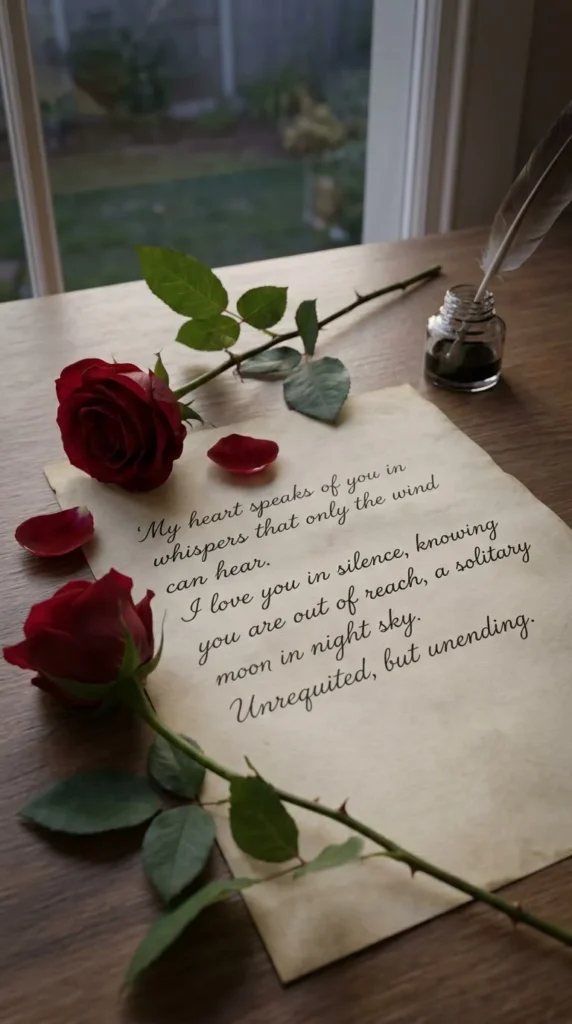 'My heart speaks of you in
whispers that only the wind
can hear.
I love you in silence, knowing
you are out of reach, a solitary
moon in night sky.
Unrequited, but unending.